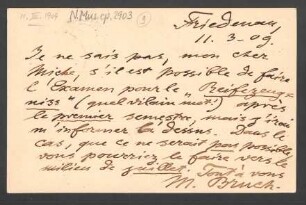 11. III. 1909
N. Mus. ep. 2403
(3)
Friedenau,
11. 3-09.
Je ne sais pas, mon cher
Miche, s'il est possible de faire
l'Examen pour le "Reifezeug-
niss" (quel vilain mot!) après
le premier semestre, mais j'irai
m'informer là dessus. Dans le
cas, que ce ne serait pas possible
vous pourriez le faire vers le
milieu de juillet. Tout à vous
M. Bruch.